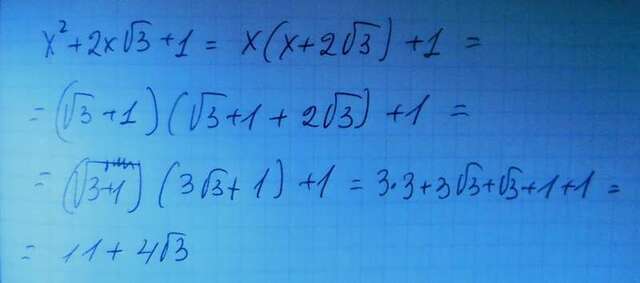 x² + 2x√3 + 1 = x(x + 2√3) + 1 =
= (√3 + 1)(√3 + 1 + 2√3) + 1 =
= (√3+1)(3√3 + 1) + 1 = 3·3 + 3√3 + √3 + 1 + 1 =
= 11 + 4√3